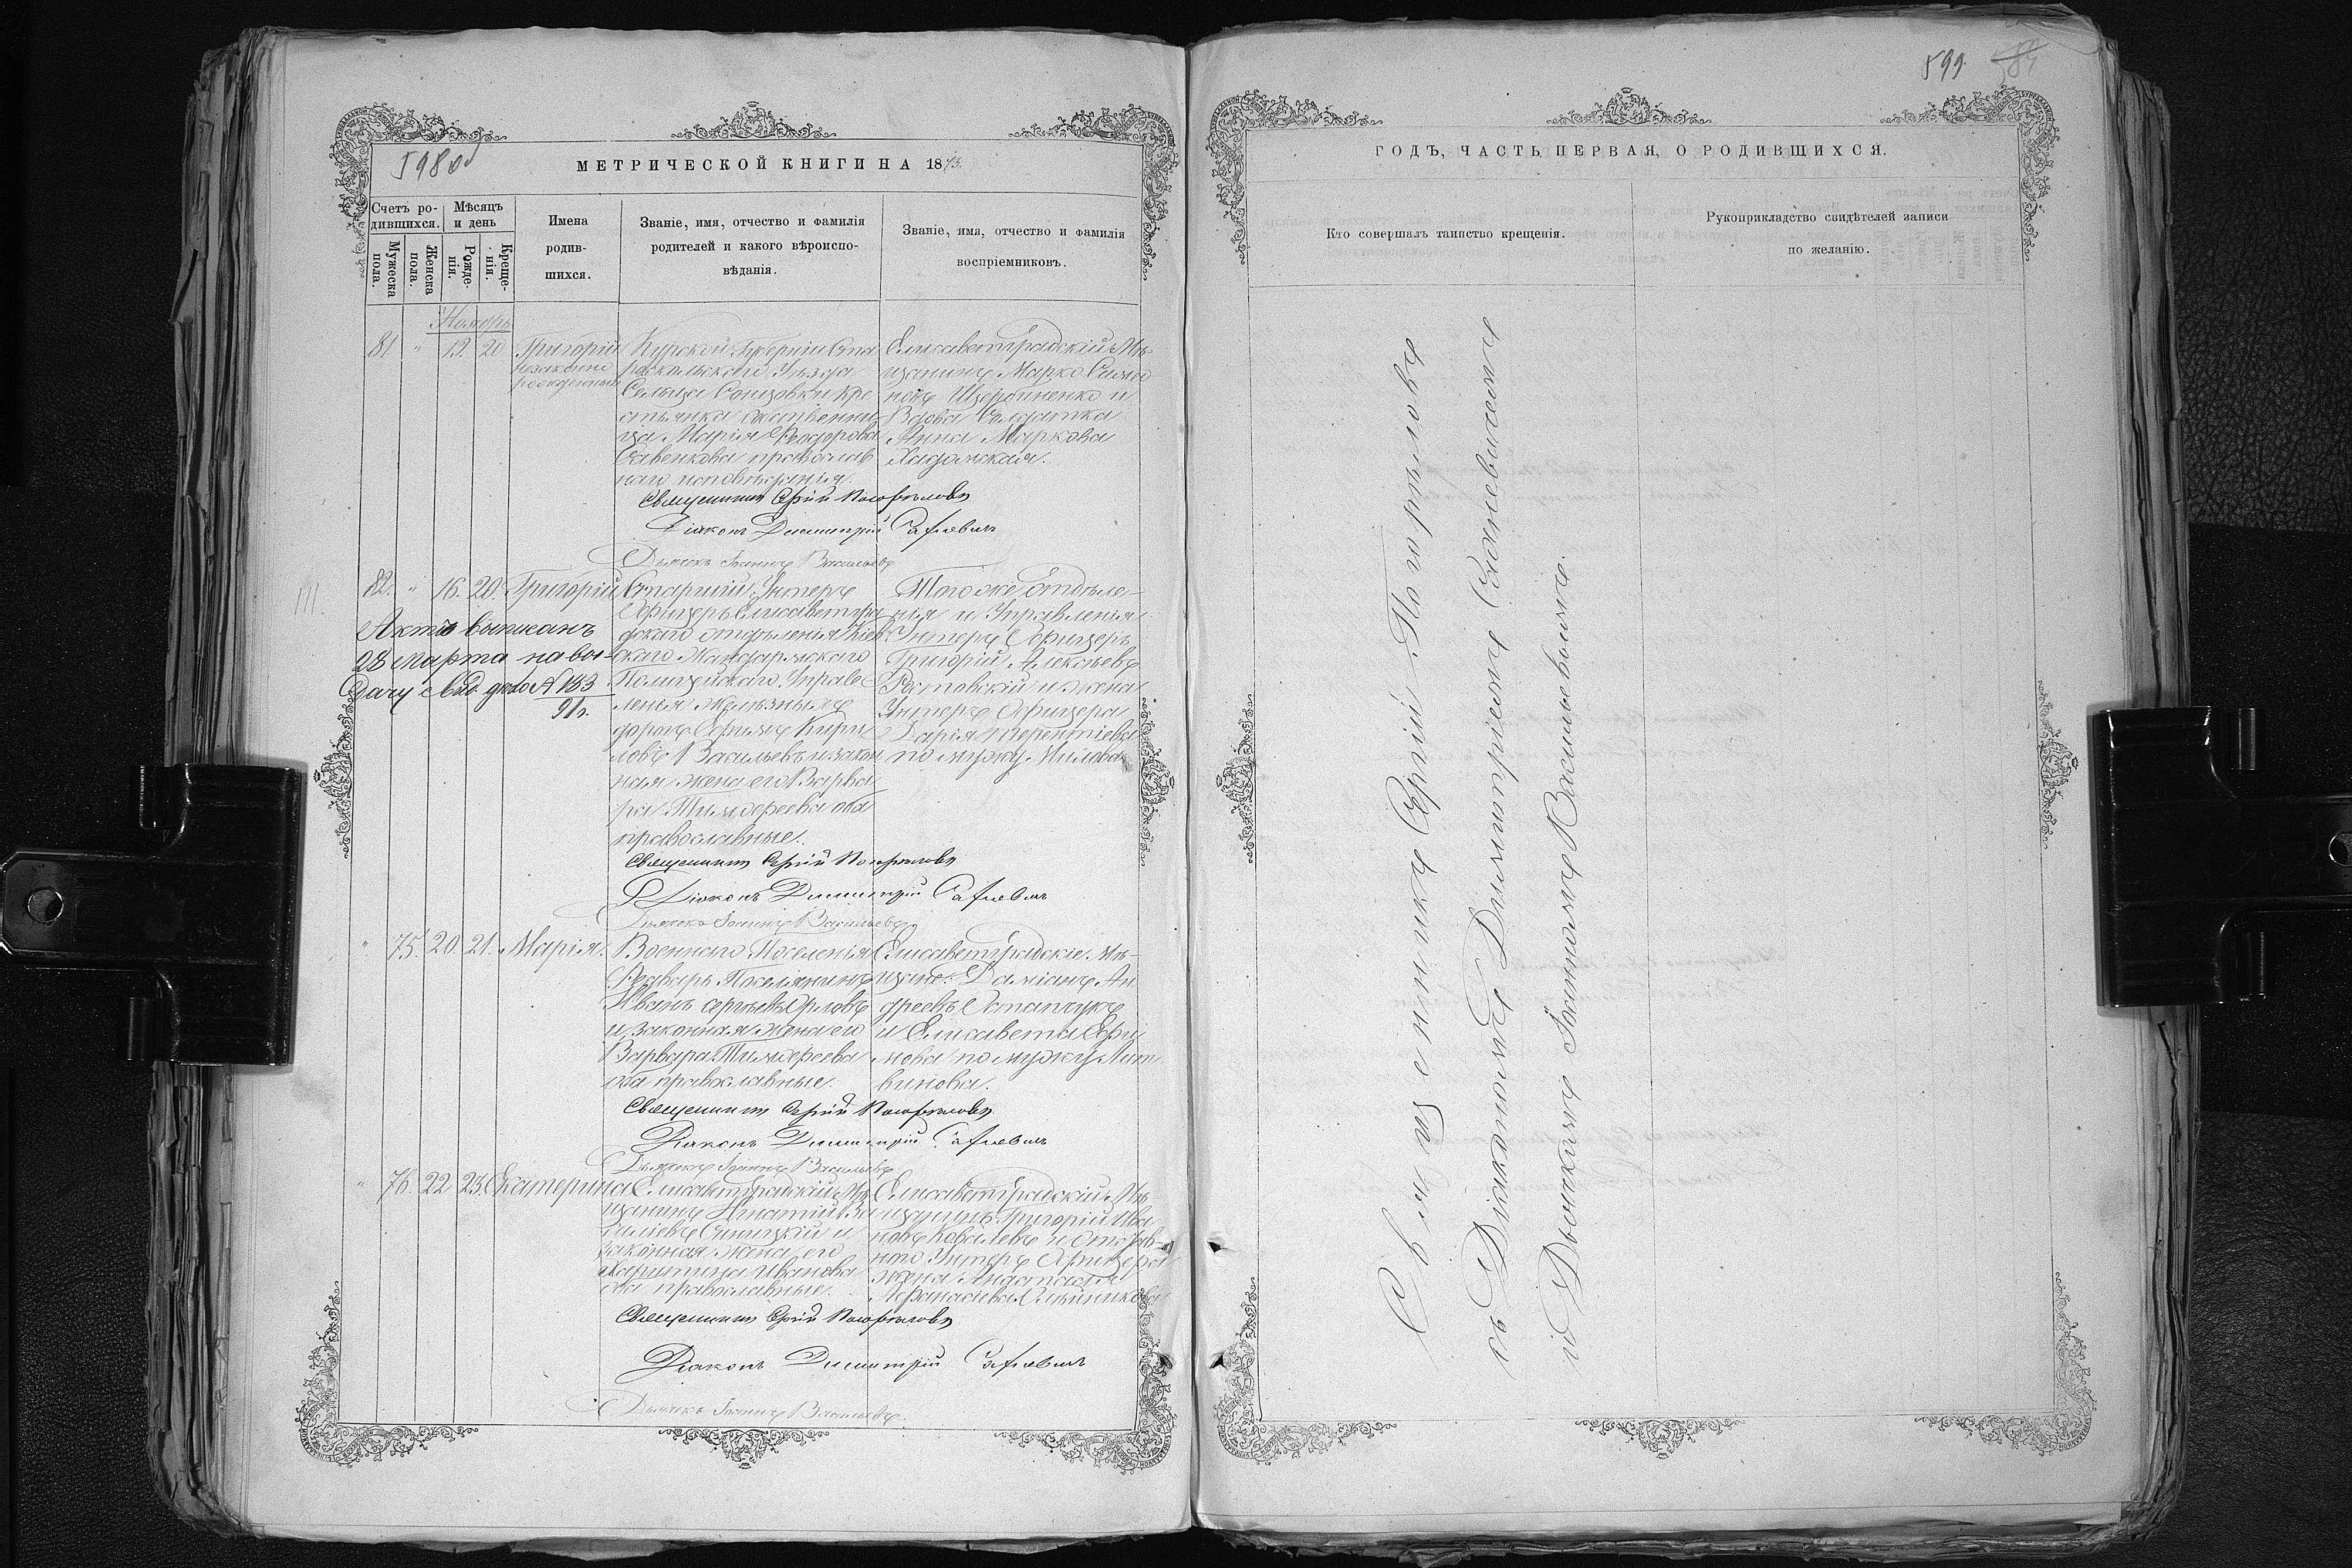 598об
МЕТРИЧЕСКОЙ КНИГИ НА 1873
Счетъ ро-
дившихся.
Мѣсяцъ
и день
Мужеска
пола.
Женска
пола.
Рожде-
нія.
Креще-
нія.
Имена
родив-
шихся.
Званіе, имя, отчество и фамилія
родителей и какого вѣроиспо-
вѣданія.
Званіе, имя, отчество и фамилія
воспріемниковъ.
Ноябрь
81 " 13. 20 Григорій
незаконно
рожденный
Курской Губерніи Ста
роскольскаго Уѣзда
Сельца Сонцовки кре
стьянка
ца Марія Ѳеодорова
Савенкова православ
наго исповѣданія.
Елисаветградскій Мѣ-
щанинъ Марко Симо
новъ Щербиненко и
Вдова Солдатка
Анна Маркова
Священникъ Сергій
Діаконъ Димитрій
Дьячекъ Іоаннъ Васильевъ
82. " 16. 20. Григорій
Актъ выписанъ
28 Марта на вы-
дачу свид. 183
91г.
Старшій Унтеръ
Офицеръ Елисаветгра
дскаго отдѣленія Кіев
скаго Жандармскаго
Полицейскаго Управ
ленія желѣзныхъ
дорогъ Ефимъ Кири
ловъ Васильевъ и закон
ная жена его Варва
ра Тимофеева оба
православные.
Тогоже отдѣле-
нія и Управленія
Унтеръ Офицеръ
Григорій Алексѣевъ
Ростовскій и жена
Унтеръ Офицера
Дарія Терентіева
по мужу
Священникъ Сергій
Діаконъ Димитрій
Дьячекъ Іоаннъ Васильевъ
" 75. 20. 21. Марія.
Военнаго Поселенія
Поселянинъ
Иванъ Сергѣевъ Орловъ
и законная жена его
Варвара Тимофеева
оба православные.
Елисаветградскіе Мѣ-
щане: Даміанъ Ан
дреевъ Остапчукъ
и Елисавета
мова по мужу Лит
винова.
Священникъ Сергій
Діаконъ Димитрій
Дьячекъ Іоаннъ Васильевъ
" 76. 22 23. Екатерина
Елисаветградскій Мѣ
щанинъ Игнатій Ва
силіевъ и
законная жена его
Харитина Иванова
оба православные.
Елисаветградскій Мѣ
щанинъ Григорій Ива
новъ Ковалевъ и отстав-
наго Унтеръ Офицера
жена Анастасія
Афанасіева
Священникъ Сергій
Діаконъ Димитрій
Дьячекъ Іоаннъ Васильевъ
599.
ГОДЪ, ЧАСТЬ ПЕРВАЯ, О РОДИВШИХСЯ.
Кто совершалъ таинство крещенія.
Рукоприкладство свидѣтелей записи
по желанію.
Священникъ Сергій
съ Діакономъ Димитріемъ
и Дьячкомъ Іоанномъ Васильевымъ.